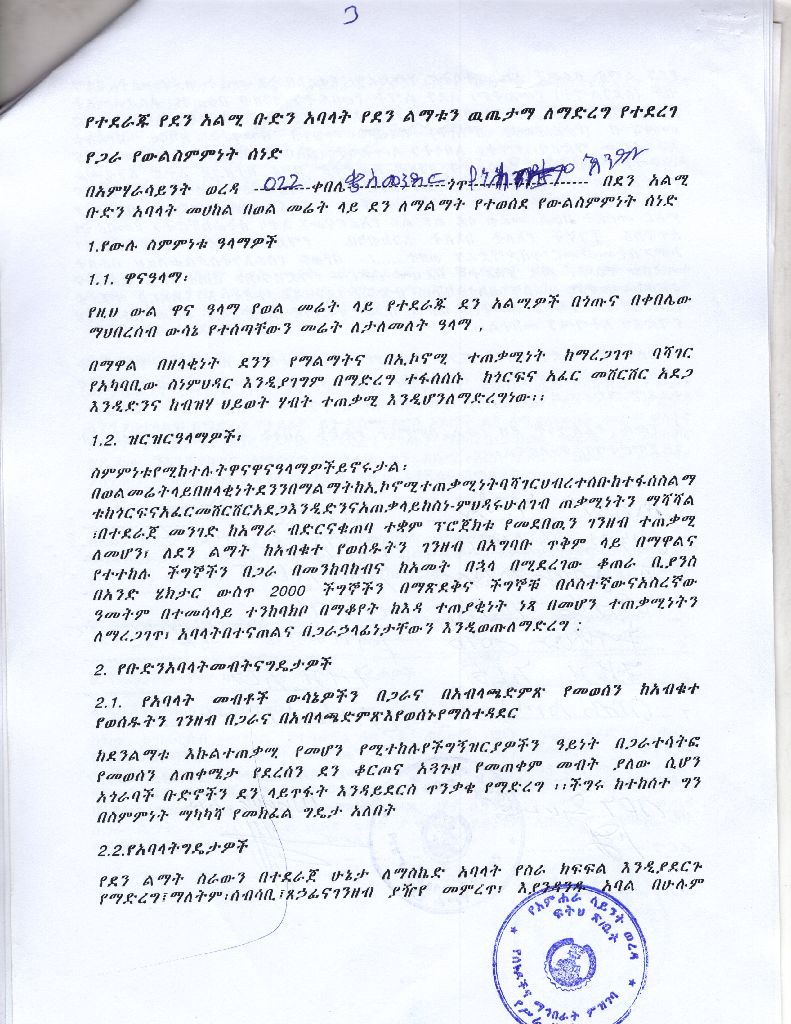 3
የተደራጁ የደን አልሚ ቡድን አባላት የደን ልማቱን ዉጤታማ ለማድረግ የተደረገ
የጋራ የውልስምምነት ሰነድ
በአምሃራሳይንት ወረዳ 022 ቀበሌ ነዋ በደን አልሚ
ቡድን አባላት መሀከል በወል መሬት ላይ ደን ለማልማት የተወሰደ የውልስምምነት ሰነድ
1.የውሉ ስምምነቱ ዓላማዎች
1.1. ዋናዓላማ፡
የዚህ ውል ዋና ዓላማ የወል መሬት ላይ የተደራጁ ደን አልሚዎች በጎጡና በቀበሌው
ማህበረሰብ ውሳኔ የተሰጣቸውን መሬት ለታለመለት ዓላማ ,
በማዋል በዘላቂነት ደንን የማልማትና በኢኮኖሚ ተጠቃሚነት ከማረጋገጥ ባሻገር
የአካባቢው ስነምህዳር እንዲያገግም በማድረግ ተፋሰሰሱ ከጎርፍና አፈር መሸርሸር አደጋ
እንዲድንና ከብዝሃ ህይወት ሃብት ተጠቃሚ እንዲሆንለማድረግነው፡፡
1.2. ዝርዝርዓላማዎች፡
ስምምነቱየሚከተሉትዋናዋናዓላማዎችይኖሩታል፡
በወልመሬትላይበዘላቂነትደንንበማልማትከኢኮኖሚተጠቃሚነትባሻገርህብረተሰቡከተፋሰስልማ
ቱከጎርፍናአፈርመሸርሸርአደጋእንዲድንናአጠቃላይከስነ-ምህዳሩሁለገብ ጠቃሚነትን ማሻሻል
፣በተደራጀ መንገድ ከአማራ ብድርናቁጠባ ተቋም ፕሮጀክቱ የመደበዉን ገንዘብ ተጠቃሚ
ለመሆን፣ ለደን ልማት ከአብቁተ የወሰዱትን ገንዘብ በአግባቡ ጥቅም ላይ በማዋልና
የተተከሉ ችግኞችን በጋራ በመንከባከብና ከአመት በኋላ በሚደረገው ቆጠራ ቢያንስ
በአንድ ሄክታር ውስጥ 2000 ችግኞችን በማጽደቅና ችግኞቹ በሶስተኛውናአስረኛው
ዓመትም በተመሳሳይ ተንከባክቦ በማቆየት ከእዳ ተጠያቂነት ነጻ በመሆን ተጠቃሚነትን
ለማረጋገጥ፣ አባላትበተናጠልና በጋራኃላፊነታቸውን እንዲወጡለማድረግ :
2. የቡድንአባላትመብትናግዴታዎች
2.1. የአባላት መብቶች ውሳኔዎችን በጋራና በአብላጫድምጽ የመወሰን ከአብቁተ
የወሰዱትን ገንዘብ በጋራና በአብላጫድምጽእየወሰኑየማስተዳደር
ከደንልማቱ እኩልተጠቃሚ የመሆን የሚተከሉየችግኝዝርያዎችን ዓይነት በጋራተሳትፎ
የመወሰን ለጠቀሜታ የደረሰን ደን ቆርጦና አጓጉዞ የመጠቀም መብት ያለው ሲሆን
አጎራባች ቡድኖችን ደን ላይጥፋት እንዳይደርስ ጥንቃቄ የማድረግ ፡፡ችግሩ ከተከሰተ ግን
በስምምነት ማካካሻ የመክፈል ግዴታ አለበት
2.2.የአባላትግዴታዎች
የደን ልማት ስራውን በተደራጀ ሁኔታ ለማስኬድ አባላት የስራ ክፍፍል እንዲያደርጉ
የማድረግ፤ማለትም፡ሰብሳቢ፤ጸኃፊናገንዘብ ያዥየ መምረጥ፣ እያንዳንዱ አባል በሁሉም
የአምሐራ ሳይንት ወረዳ
ፍትህ ጽ/ቤት